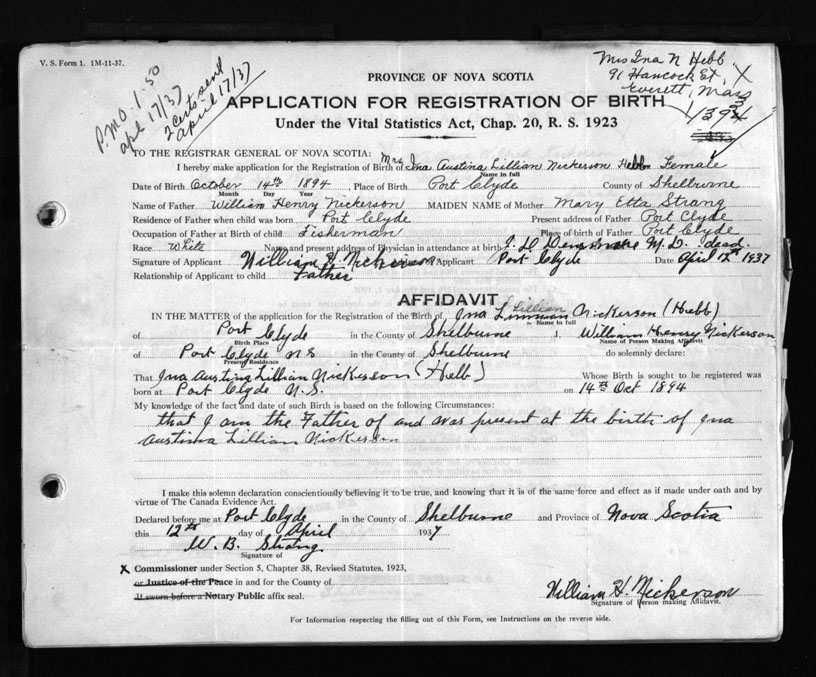 V. S. Form 1. 1M-11-37.
P.M.O. 1.50
apl 17/37
2 Certs sent
april 17/37
Mrs Ina N Hebb
91 Hancock St, X
Everett, Mass
1394
PROVINCE OF NOVA SCOTIA
APPLICATION FOR REGISTRATION OF BIRTH
Under the Vital Statistics Act, Chap. 20, R. S. 1923
TO THE REGISTRAR GENERAL OF NOVA SCOTIA:
I hereby make application for the Registration of Birth of Mrs Ina Austina Lillian Nickerson Hebb Female
Name in full
Date of Birth October 14th 1894, Place of Birth Port Clyde County of Shelburne
Month Day Year
Name of Father William Henry Nickerson MAIDEN NAME of Mother Mary Etta Strang
Residence of Father when child was born Port Clyde Present address of Father Port Clyde
Occupation of Father at Birth of child Fisherman Place of birth of Father Port Clyde
Race White Name and present address of Physician in attendance at birth M.D. dead.
Signature of Applicant William H. Nickerson Applicant Port Clyde Date April 12th 1937
Relationship of Applicant to child Father
AFFIDAVIT
IN THE MATTER of the application for the Registration of the Birth of Ina Lillian Nickerson (Hebb)
Name in full
of Port Clyde in the County of Shelburne I, William Henry Nickerson
Birth Place Name of Person Making Affidavit
of Port Clyde NS in the County of Shelburne do solemnly declare:
Present Residence
That Ina Austina Lillian Nickerson (Hebb) Whose Birth is sought to be registered was
born at Port Clyde N.S. on 14th Oct 1894
My knowledge of the fact and date of such Birth is based on the following Circumstances:
that I am the Father of and was present at the birth of Ina
Austina Lillian Nickerson
I make this solemn declaration conscientiously believing it to be true, and knowing that it is of the same force and effect as if made under oath and by
virtue of The Canada Evidence Act.
Declared before me at Port Clyde in the County of Shelburne and Province of Nova Scotia
this 12th day of April 1937
W. B. Strang
Signature of
X Commissioner under Section 5, Chapter 38, Revised Statutes, 1923,
or Justice of the Peace in and for the County of
If sworn before a Notary Public affix seal.
William H. Nickerson
Signature of Person making Affidavit.
For Information respecting the filling out of this Form, see Instructions on the reverse side.